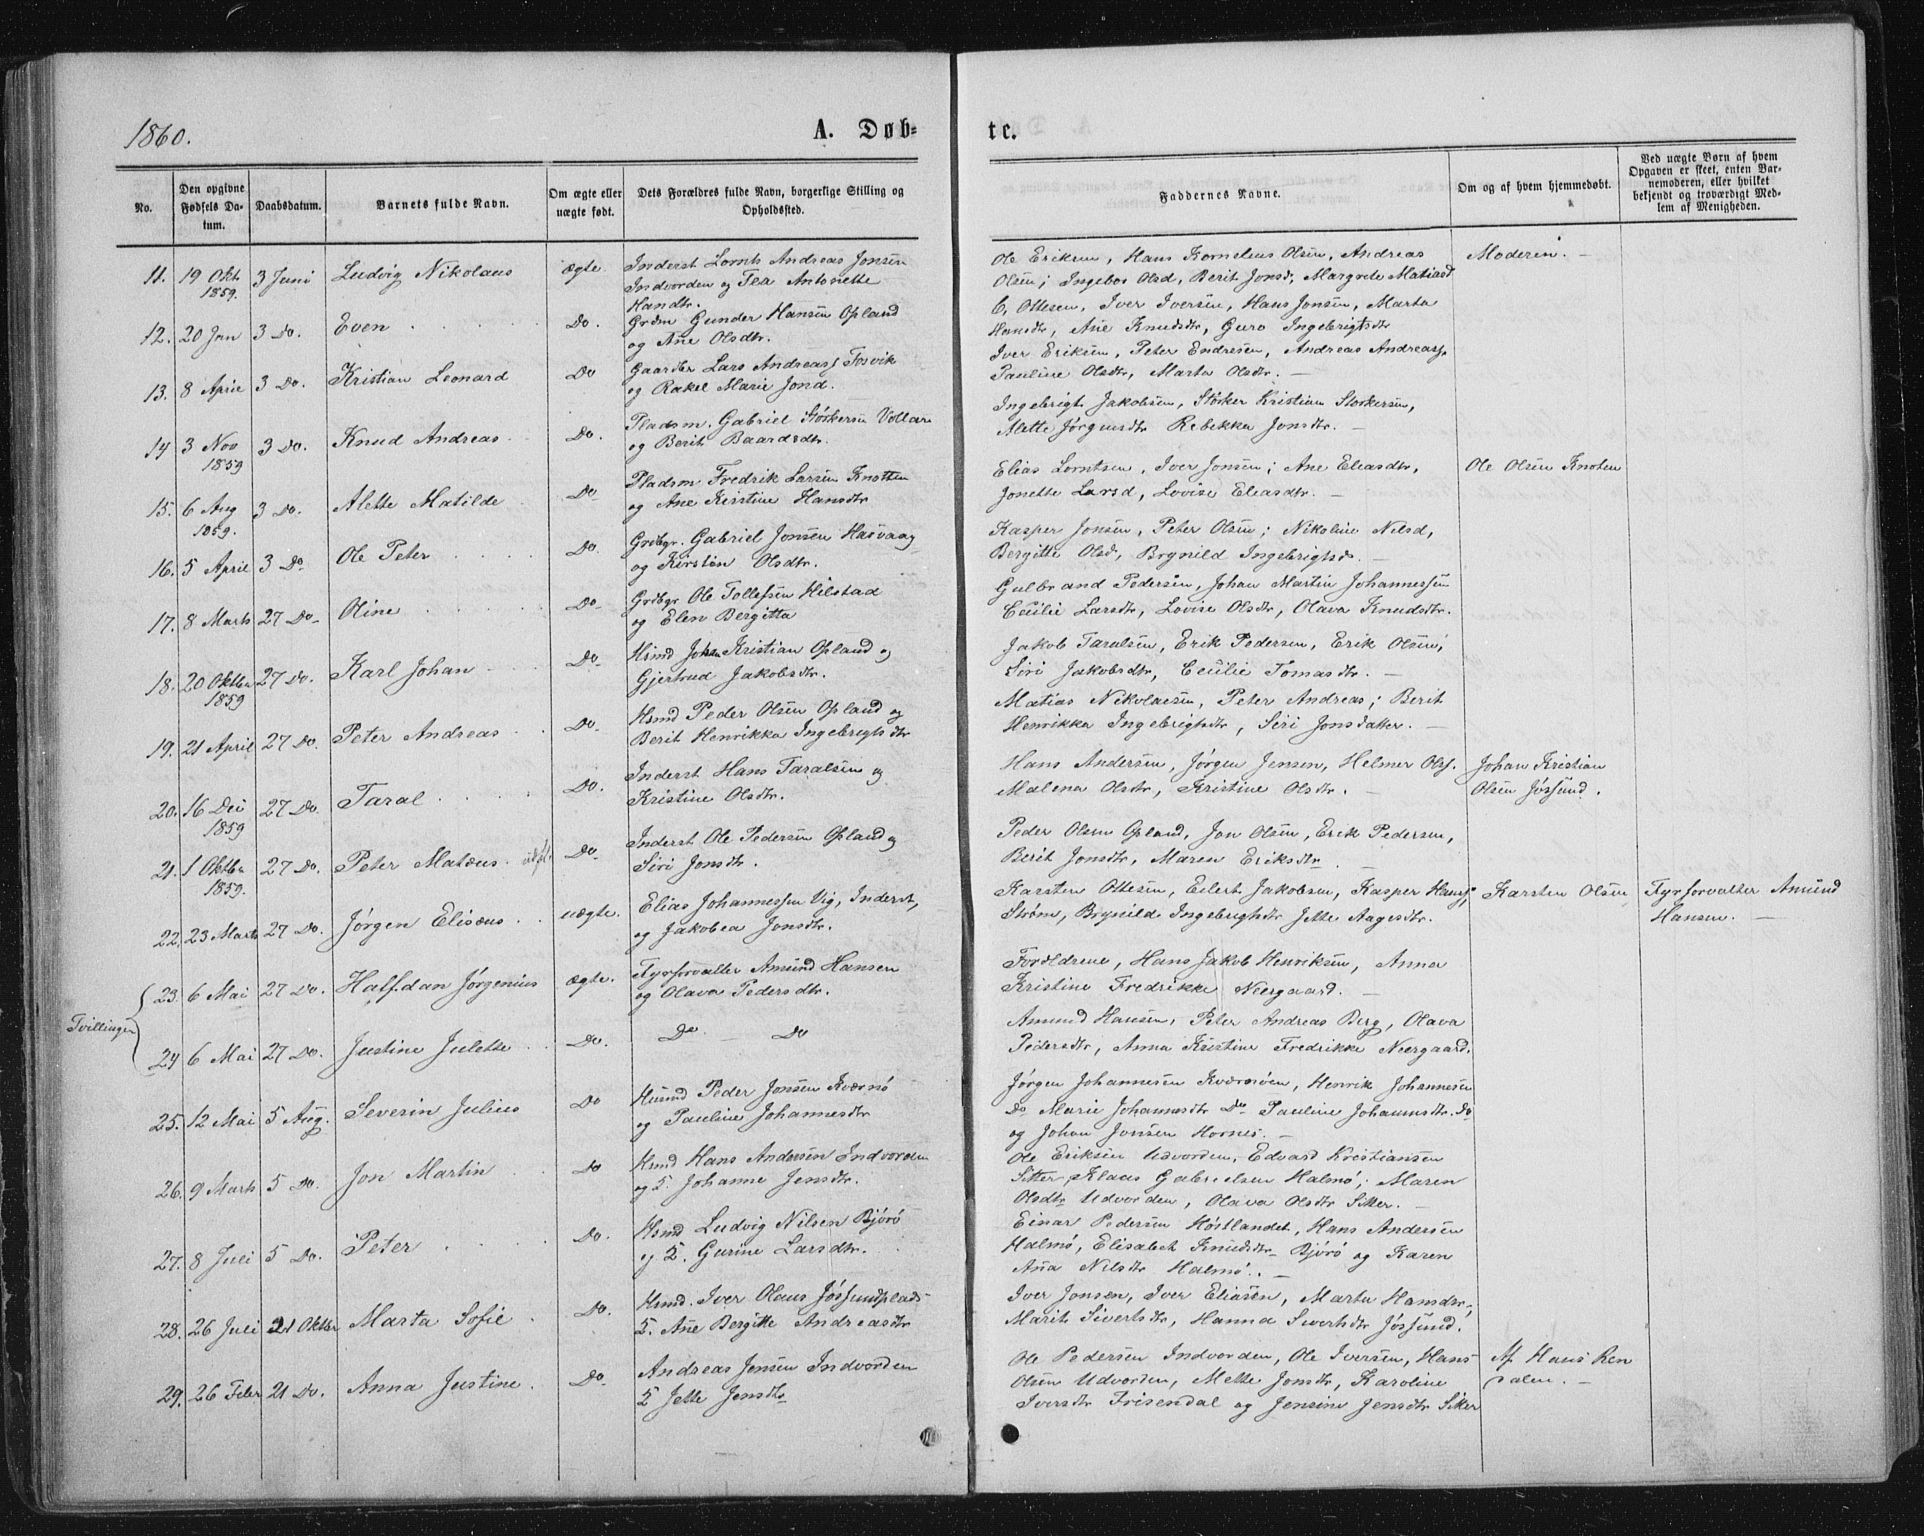 1860.
A. Døb-
te.
No.
Den opgivne Fødsels Da-tum.
Daabsdatum.
Barnets fulde Navn.
Om ægte eller uægte født.
Dets Forældres fulde Navn, borgerlige Stilling og Opholdssted.
Faddernes Navne.
Om og af hvem hjemmedøbt.
Ved uægte Børn af hvem Opgaven er skeet, enten Bar-nemoderen, eller hvilket bekjendt og troværdigt Med-lem af Menigheden.
11. 19 Okt 1859. 3 Juni Ludvig Nikolaus ægte.
Inderst Lornts Andreas Jonsen
Indvorden og Antonette
Hansdtr.
Ole Eriksen, Hans Kornelius Olsen, Andreas
Olsen; Ingebor Olsd, Berit Jonsd, Margrete Matiasd
Moderen. -
12. 20 Jan 3 Do. Even Do.
Grdm Gunder Hansen Opland
og Ane Olsdtr.
C. Ottesen, Iver Iversen, Hans Jonsen, Marta
Hansdtr, Ane Knudsdtr, Guro Ingebrigtsdtr
13. 8 April 3 Do. Kristian Leonard Do
Gaardbr Lars Andreas Tosvik
og Rakel Marie Jond.
Iver Eriksen, Peter Endresen, Andreas Andreass,
Pauline Olsdtr, Marta Olsdtr. -
14 3 Nov 1859 3 Do. Knud Andreas Do.
Pladsm. Gabriel Størkersen Vollan
og Berit Baardsdtr.
Ingebrigt Jakobsen, Størker Kristian Storkersen,
Alette Jørgensdtr Rebekka Jonsdtr. -
15. 6 Aug 1859. 3 Do. Alette Matilde Do
Pladsm Fredrik Larsen Knotten
og Ane Kristine Hansdtr
Elias Lorntsen, Iver Jonsen; Ane Eleasdtr,
Jonette Larsd, Lovise Eleasdtr. -
Ole Olsen Knoten
16. 5 April 3 Do Ole Peter Do.
Grdbgr. Gabriel Jonsen Hasvaag
og Kirsten Olsdtr.
Kasper Jonsen, Peter Olsen; Nikoline Nilsd,
Bergitte Olsd, Brynild Ingebrigtsd. -
17. 8 Marts 27 Do. Oline Do.
Grdbgr Ole Tollefsen Hilstad
og Elen Bergitta
Gulbrand Pedersen, Johan Martin Johannessen
Cecilie Larsdtr, Lovise Olsdtr, Olava Knudsdtr.
18. 20 Oktbr 1859 27 Do. Karl Johan Do.
Hsmd Johan Kristian Opland og
Gjertrud Jakobsdtr.
Jakob Taralsen, Erik Pedersen, Erik Olsen;
Siri Jakobsdtr, Cecilie Tomasdtr. -
19. 21 April 27 Do. Peter Andreas Do.
Hsmd Peder Olsen Opland og
Berit Henrikka Ingebrigtsdtr
Matias Nikolaesen, Peter Andreas; Berit
Henrikka Ingebrigtsdtr, Siri Jonsdatter. -
20. 16 Dei 1859 27 Do. Taral Do.
Inderst Hans Taralsen og
Kristine Olsdtr.
Hans Andersen, Jørgen Jensen, Helmer Ols.
Malena Olsdtr, Kristine Olsdtr. -
Johan Kristian
Olsen Jøssund.
21. 1 Oktbr 1859. 27 Do. Peter Matæus. Do.
Inderst Ole Pedersen Opland og
Siri Jonsdtr.
Peder Olsen Opland, Jon Olsen, Erik Pedersen,
Berit Jonsdtr, Maren Eriksdtr.
22. 23 Marts 27 Do. Jørgen Elisæus uægte.
Elias Johannessen Vig, Inderst,
og Jakobea Jonsdtr.
Karsten Ottesen, Eilert Jakobsen, Kasper Hanss,
Strøm, Brynild Ingebrigtsdtr Jette Aagesdtr.
Karsten Olsen
Fyrforvalter Amund
Hansen. -
Tvillinger
23. 6 Mai 27 Do. Halfdan Jørgenius ægte.
Fyrforvalter Amund Hansen
og Olava Pedersdtr.
Forældrene, Hans Jakob Henriksen, Anna
Kristine Fredrikke Neergaard. -
24 6 Mai 27 Do. Justine Julette Do.
Do - Do
Amund Hansen, Peter Andreas Berg, Olava
Pedersdtr, Anna Kristine Fredrikke Neergaard.
25. 12 Mai 5 Aug. Severin Julius Do
Husmd Peder Jonsen Kværnø
og Pauline Johannesdtr
Jørgen Johannesen Kværnøen, Henrik Johannesen
Do Marie Johannesdtr Do Pauline Johannsdtr. Do
og Johan Jonsen Hornes. -
26. 9 Marts 5 Do. Jon Martin Do
Hsmd Hans Andersen Indvorden
og H. Johanne Jensdtr.
Ole Eriksen Udvorden, Edvard Kristiansen
Sitter, Klaus Gabrielsen Halmø; Maren
Olsdtr Udvorden, Olava Olsdtr Sitter. -
27. 8 Juli 5 Do. Peter Do.
Hsmd Ludvig Nilsen Bjørø
og H. Gurine Larsdtr.
Einar Pedersen Høstlandet, Hans Andersen
Halmø, Elisabet Knudsdtr Bjørø og Karen
Ana Nilsdtr Halmø. -
28. 26 Juli 21 Oktbr Marta Sofie Do.
Hsmd. Iver Olaus Jøssundplads
H. Ane Bergitte Andreasdtr
Iver Jonsen, Iver Eliasen, Marta Hansdtr,
Marit Sivertsdtr, Hanna Sivertsdtr Jøssund.
29. 26 Feber 21 Do. Anna Justine. Do.
Andreas Jensen Indvorden
H Jette Jensdtr
Ole Pedersen Indvorden, Ole Iversen, Hans
Olsen Udvorden, Mette Jonsdtr, Karoline
Iversdtr Frisendal og Jensine Jensdtr Sitter
Af Hans Ren
dalen. -